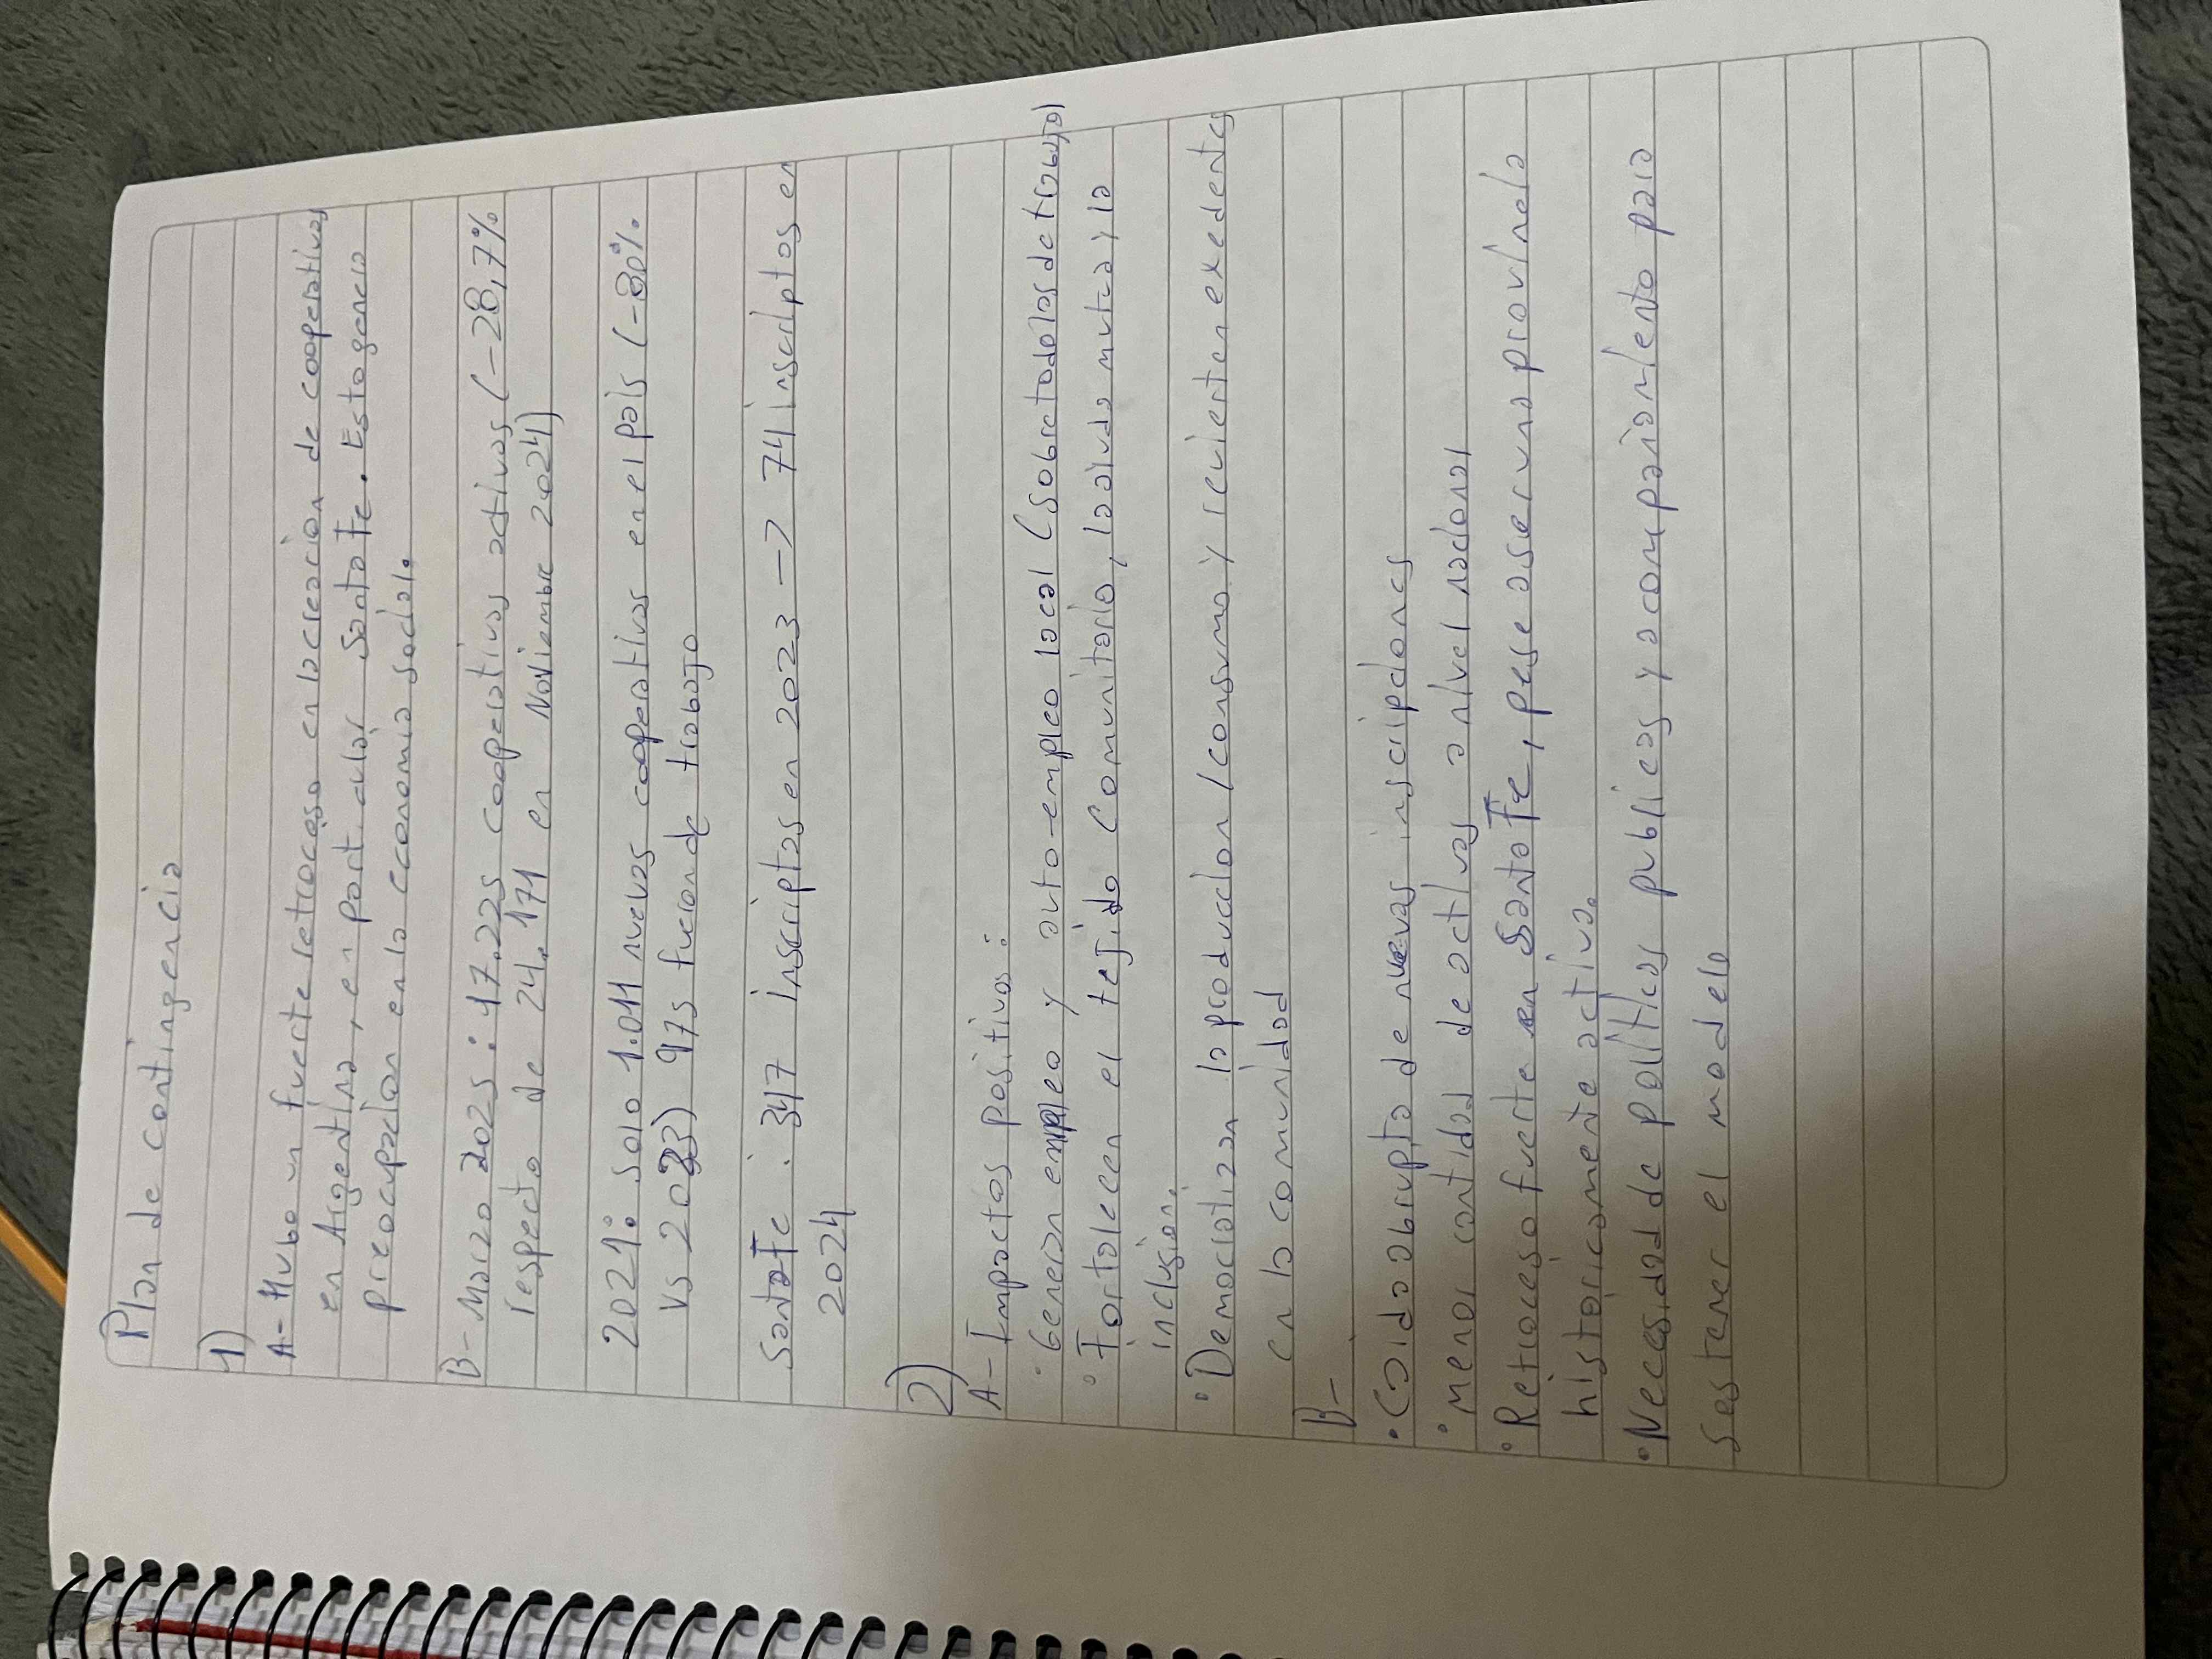 Plan de contingencia
1)
A- Hubo un fuerte retroceso en la creación de cooperativas
en Argentina, en particular Santa Fe. Esto genera
preocupación en la economia social.
B- Marzo 2025: 17.225 cooperativas activas (-28,7%
respecto de 24.171 en Noviembre 2024)
2021: solo 1.011 nuevas cooperativas en el país (-80%.
vs 2023) 975 fueron de trabajo
Santa Fe: 347 inscriptas en 2023 -> 74 inscriptos en
2024
2)
A- Impactos positivos:
• Generan empleo y auto-empleo local (sobre todo las de trabajo)
• Fortalecen el tejido Comunitario, la aiuda mutua y la
inclusion.
• Democratizan la produccion/consumo y revierten exedentes
en la comunidad
B-
• Caida abrupta de nuevas inscripciones
• Menor cantidad de activas a nivel nacional
• Retroceso fuerte en Santa Fe, pese a ser una provincia
historicamente activa.
• Necesidad de políticas publicas y acompañamiento para
sostener el modelo